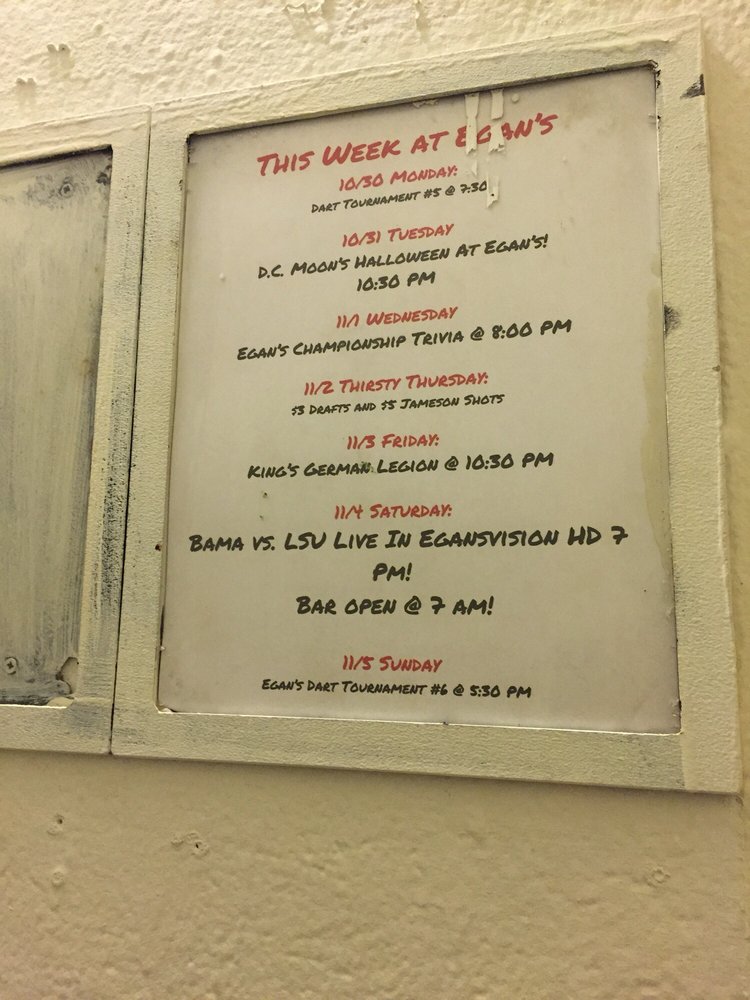 This Week at Egan's
10/30 Monday:
Dart Tournament #5 @ 7:30
10/31 Tuesday
D.C. Moon's Halloween At Egan's!
10:30 PM
11/1 Wednesday
Egan's Championship Trivia @ 8:00 PM
11/2 Thirsty Thursday:
$3 Drafts and $5 Jameson Shots
11/3 Friday:
King's German Legion @ 10:30 PM
11/4 Saturday:
Bama vs. LSU Live In Egansvision HD 7
PM!
Bar open @ 7 AM!
11/5 Sunday
Egan's Dart Tournament #6 @ 5:30 PM